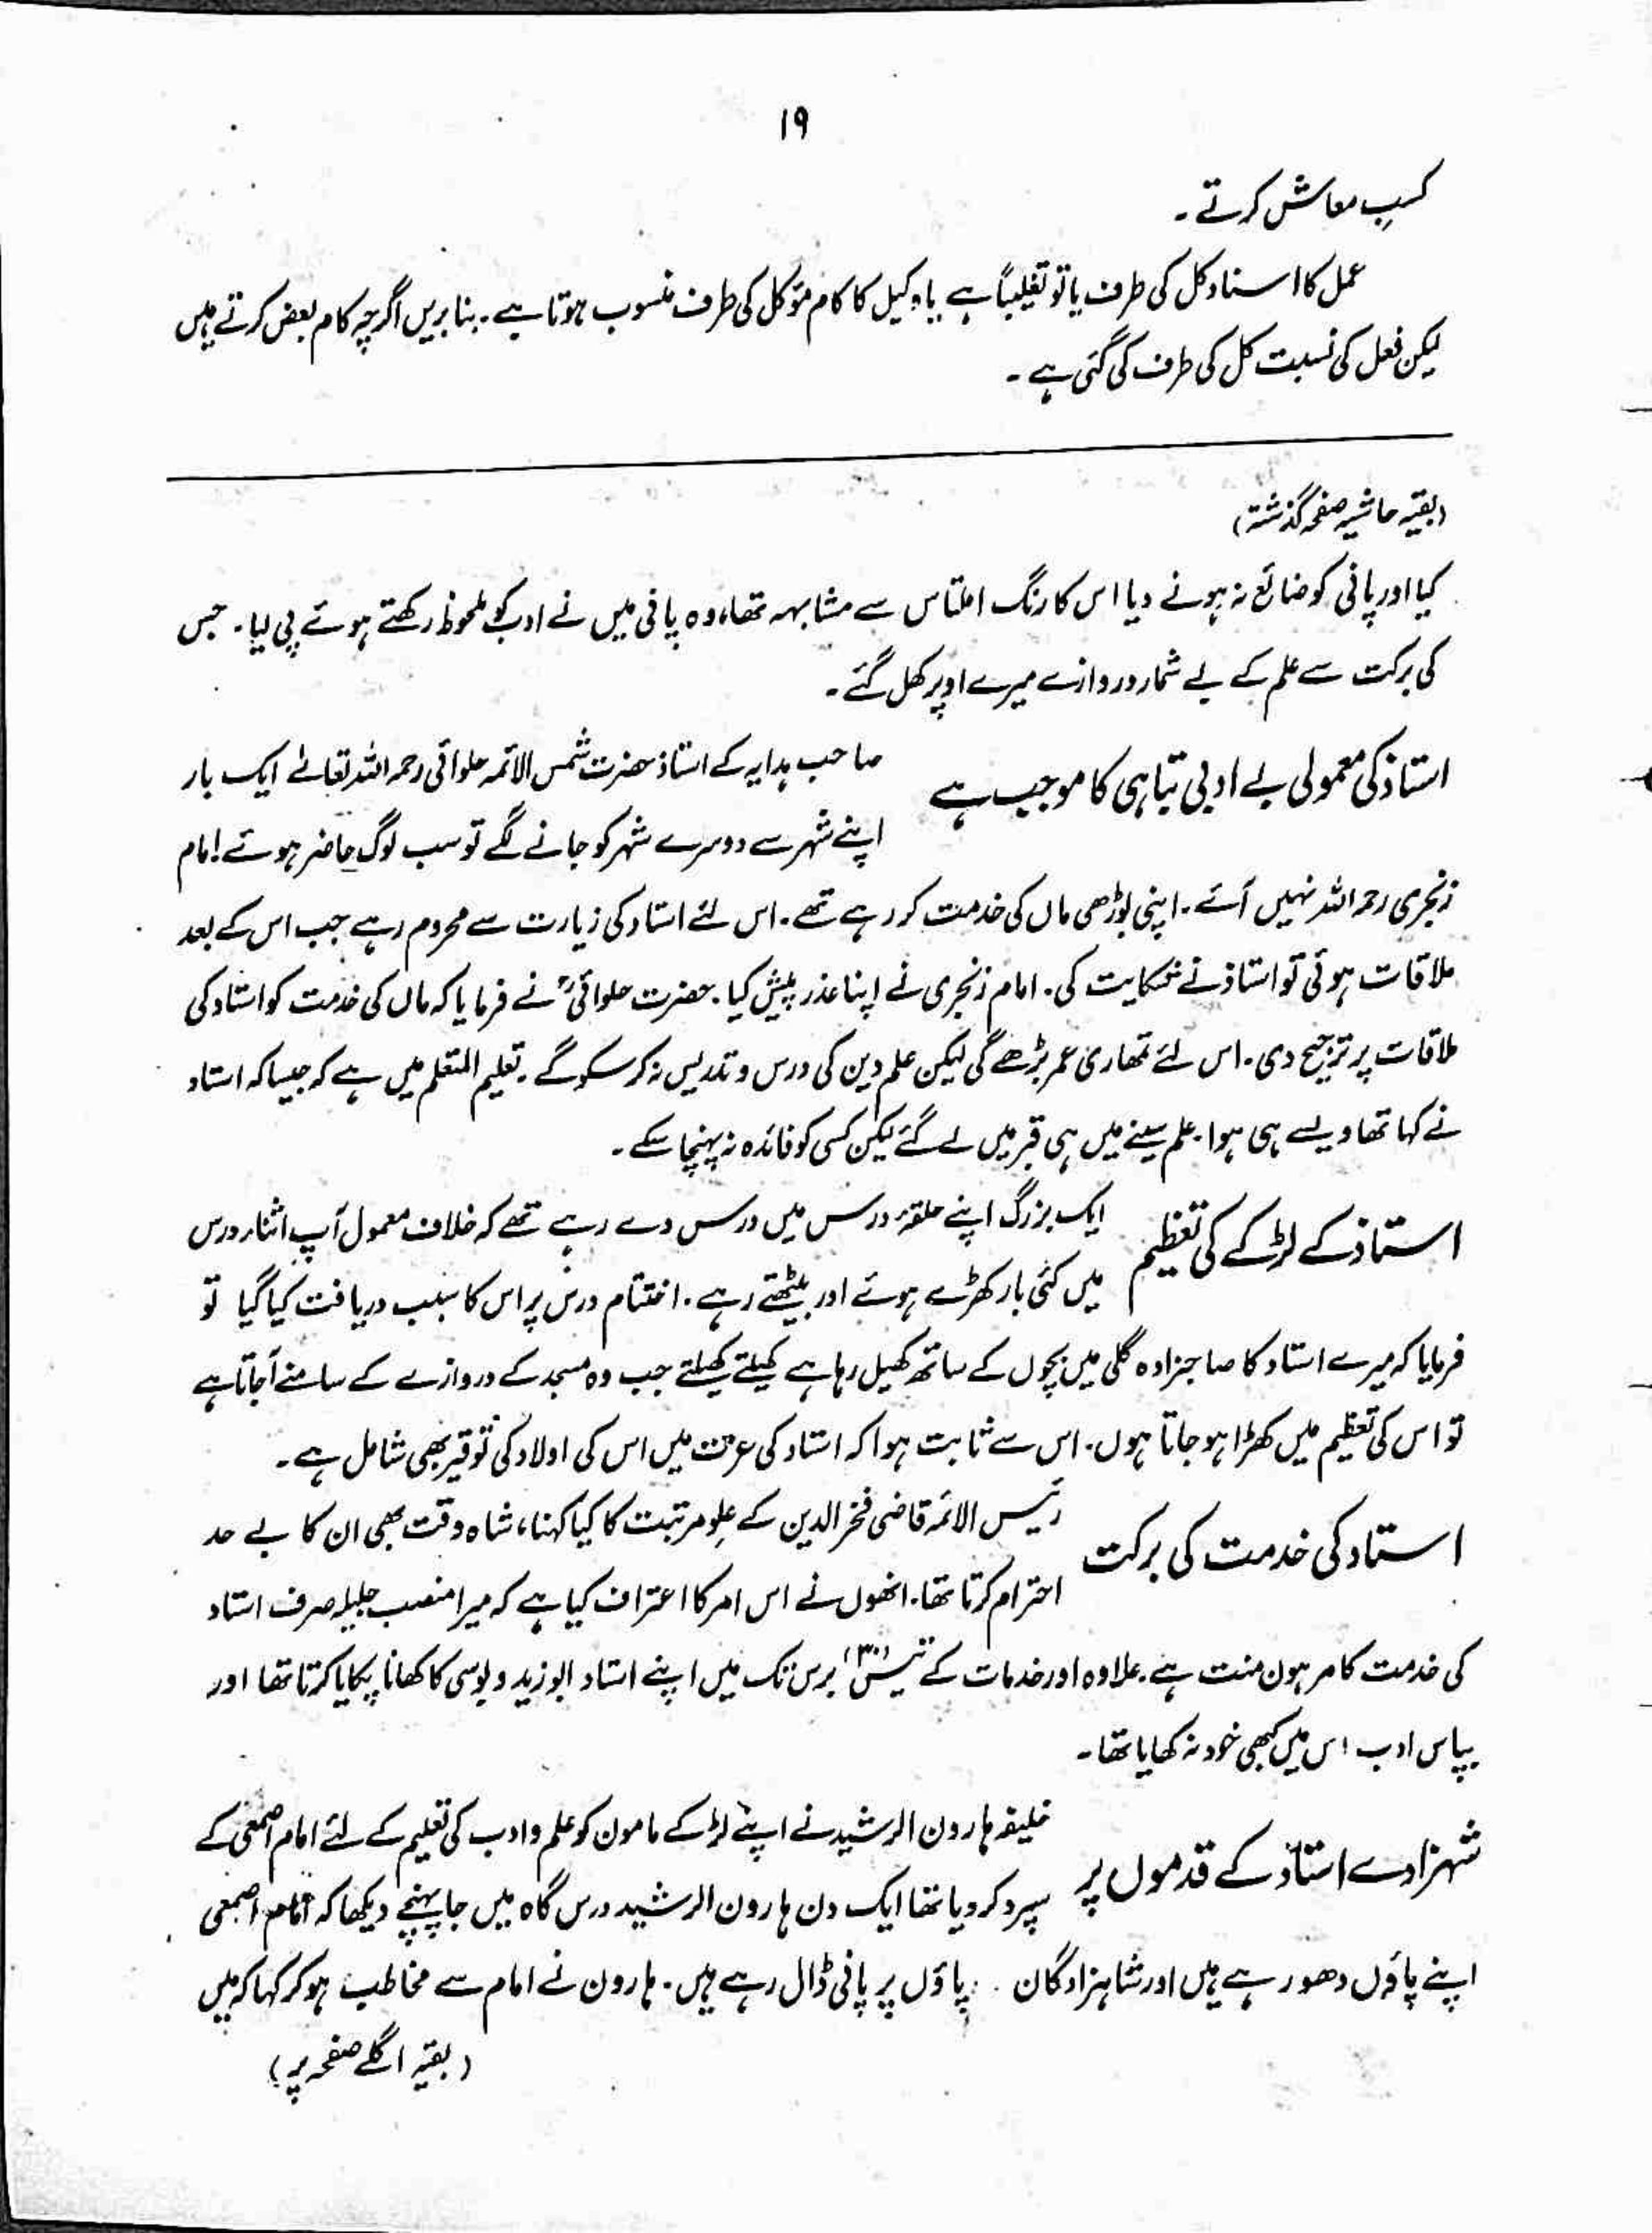 ۱۹
کسبِ معاش کرتے۔
عمل کا اسناد کل کی طرف یا تو تغلیباً ہے یا وکیل کا کام مؤکل کی طرف منسوب ہوتا ہے۔ بنا بریں اگرچہ کام بعض کرتے ہیں
لیکن فعل کی نسبت کل کی طرف کی گئی ہے۔
(بقیہ حاشیہ صفحہ گذشتہ)
کیا اور پانی کو ضائع نہ ہونے دیا اس کا رنگ املتاس سے مشابہہ تھا، وہ پانی میں نے ادب کو ملحوظ رکھتے ہوئے پی لیا۔ جس
کی برکت سے علم کے بے شمار دروازے میرے اوپر کھل گئے۔
استاذ کی معمولی بے ادبی تباہی کا موجب ہے
صاحب ہدایہ کے استاذ حضرت شمس الائمہ حلوائی رحمہ اللہ تعالیٰ ایک بار
اپنے شہر سے دوسرے شہر کو جانے لگے تو سب لوگ حاضر ہوئے! امام
زنجری رحمہ اللہ نہیں آئے۔ اپنی بوڑھی ماں کی خدمت کر رہے تھے۔ اس لئے استاد کی زیارت سے محروم رہے جب اس کے بعد
ملاقات ہوئی تو استاذ نے شکایت کی۔ امام زنجری نے اپنا عذر پیش کیا۔ حضرت حلوائیؒ نے فرمایا کہ ماں کی خدمت کو استاد کی
ملاقات پر ترجیح دی۔ اس لئے تمھاری عمر بڑھے گی لیکن علم دین کی درس و تدریس نہ کر سکو گے۔ تعلیم المتعلم میں ہے کہ جیسا کہ استاد
نے کہا تھا ویسے ہی ہوا۔ علم سینے میں ہی قبر میں لے گئے لیکن کسی کو فائدہ نہ پہنچا سکے۔
استاذ کے لڑکے کی تعظیم
ایک بزرگ اپنے حلقۂ درس میں درس دے رہے تھے کہ خلاف معمول آپ اثنار درس
میں کئی بار کھڑے ہوئے اور بیٹھتے رہے۔ اختتام درس پر اس کا سبب دریافت کیا گیا تو
فرمایا کہ میرے استاد کا صاحبزادہ گلی میں بچوں کے ساتھ کھیل رہا ہے کھیلتے کھیلتے جب وہ مسجد کے دروازے کے سامنے آجاتا ہے
تو اس کی تعظیم میں کھڑا ہو جاتا ہوں۔ اس سے ثابت ہوا کہ استاد کی عزت میں اس کی اولاد کی توقیر بھی شامل ہے۔
استاد کی خدمت کی برکت
رئیس الائمہ قاضی فخر الدین کے علو مرتبت کا کیا کہنا، شاہ وقت بھی ان کا بے حد
احترام کرتا تھا۔ انھوں نے اس امر کا اعتراف کیا ہے کہ میرا منصب جلیلہ صرف استاد
کی خدمت کا مرہون منت ہے۔ علاوہ اور خدمات کے تیس (۳۰) برس تک میں اپنے استاد ابوزید دبوسی کا کھانا پکایا کرتا تھا اور
بپاس ادب اس میں کبھی خود نہ کھایا تھا۔
شہزادے استاد کے قدموں پر
خلیفہ ہارون الرشید نے اپنے لڑکے مامون کو علم و ادب کی تعلیم کے لئے امام اصمعی کے
سپرد کر دیا تھا ایک دن ہارون الرشید درس گاہ میں جا پہنچے دیکھا کہ امام اصمعی
اپنے پاؤں دھو رہے ہیں اور شاہزادگان پاؤں پر پانی ڈال رہے ہیں۔ ہارون نے امام سے مخاطب ہو کر کہا کہ میں
(بقیہ اگلے صفحہ پر)